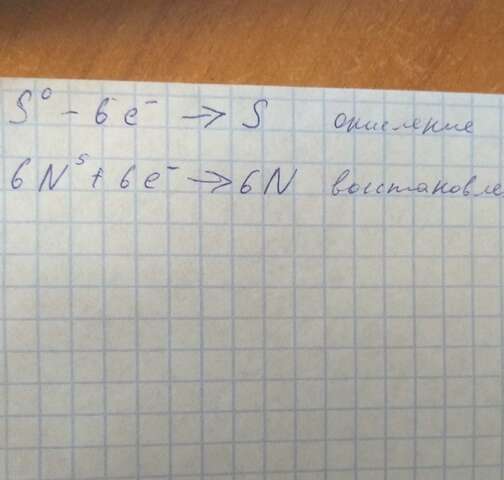 S⁰ - 6e⁻ → S окисление
6N⁵ + 6e⁻ → 6N восстановле